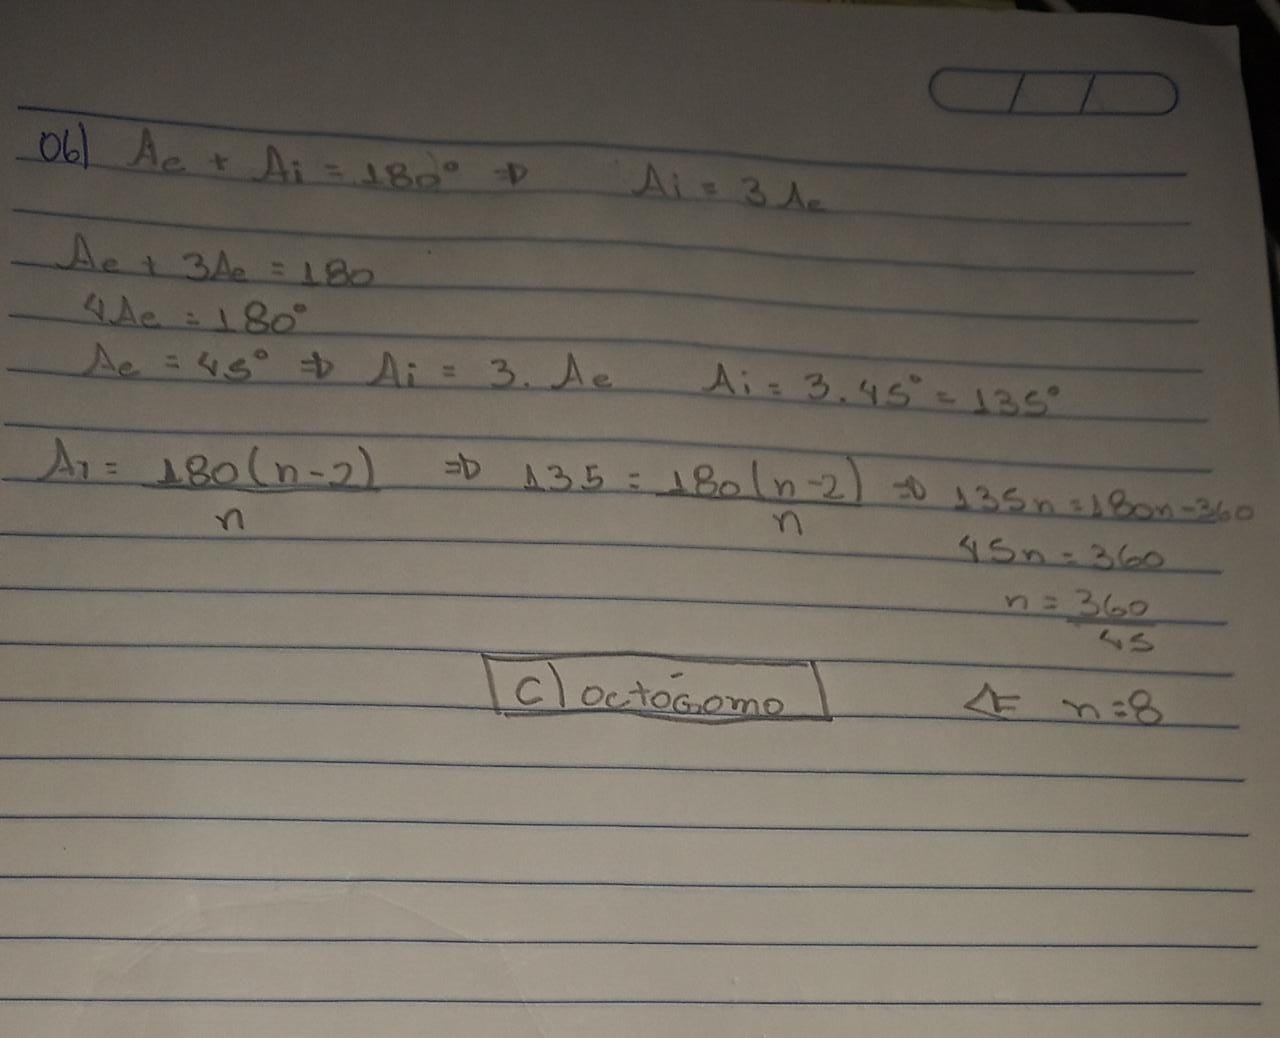 06) Ae + Ai = 180° ⇒ Ai = 3 Ae
Ae + 3Ae = 180
4Ae = 180°
Ae = 45° ⇒ Ai = 3. Ae Ai = 3. 45° = 135°
Ai = 180(n-2)/n ⇒ 135 = 180(n-2)/n ⇒ 135n = 180n - 360
45n = 360
n = 360/45
c) octógomo ⇐ n = 8